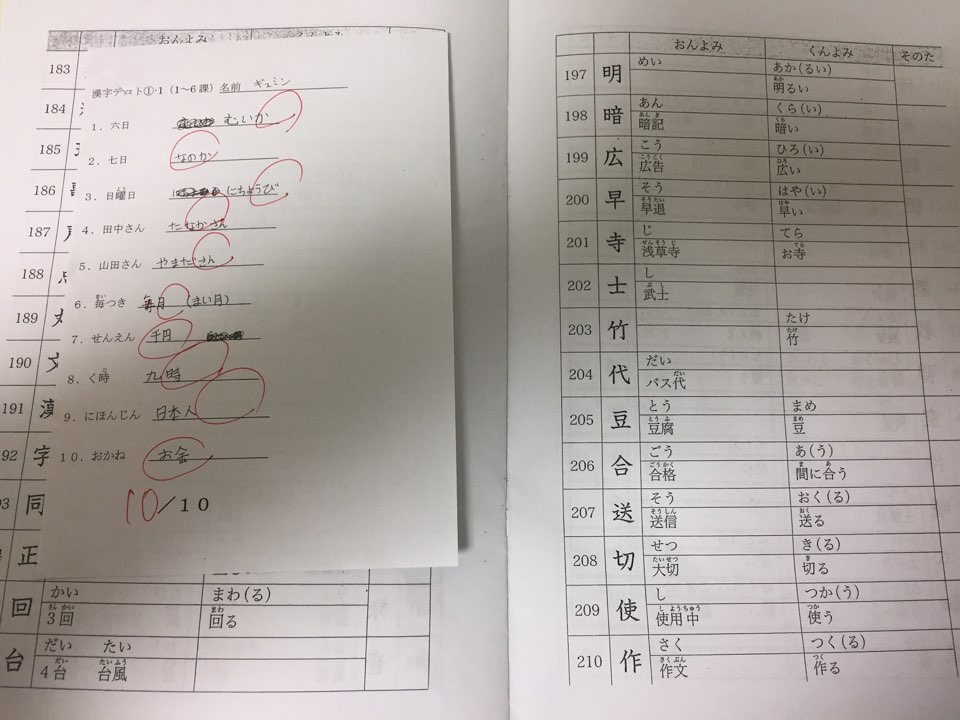 おんよみ くんよみ
183
184
185
186
187
188
189
190
191 漢
92 字
93 同
正
回 かい まわ(る)
3回 回る
台 だい たい
4台 台風
漢字テスト①-1(1~6課)名前 ギュミン
1.六日 むいか
2.七日 なのか
3.日曜日 にちようび
4.田中さん たなかさん
5.山田さん やまださん
6.毎つき 毎月 (まい月)
7.せんえん 千円
8.く時 九時
9.にほんじん 日本人
10.おかね お金
10/10
おんよみ くんよみ そのた
197 明 めい あか(るい)
明るい
198 暗 あん くら(い)
暗記 暗い
199 広 こう ひろ(い)
広告 広い
200 早 そう はや(い)
早退 早い
201 寺 じ てら
浅草寺 お寺
202 士 し
武士
203 竹 たけ
竹
204 代 だい
バス代
205 豆 とう まめ
豆腐 豆
206 合 ごう あ(う)
合格 間に合う
207 送 そう おく(る)
送信 送る
208 切 せつ き(る)
大切 切る
209 使 し つか(う)
使用中 使う
210 作 さく つく(る)
作文 作る